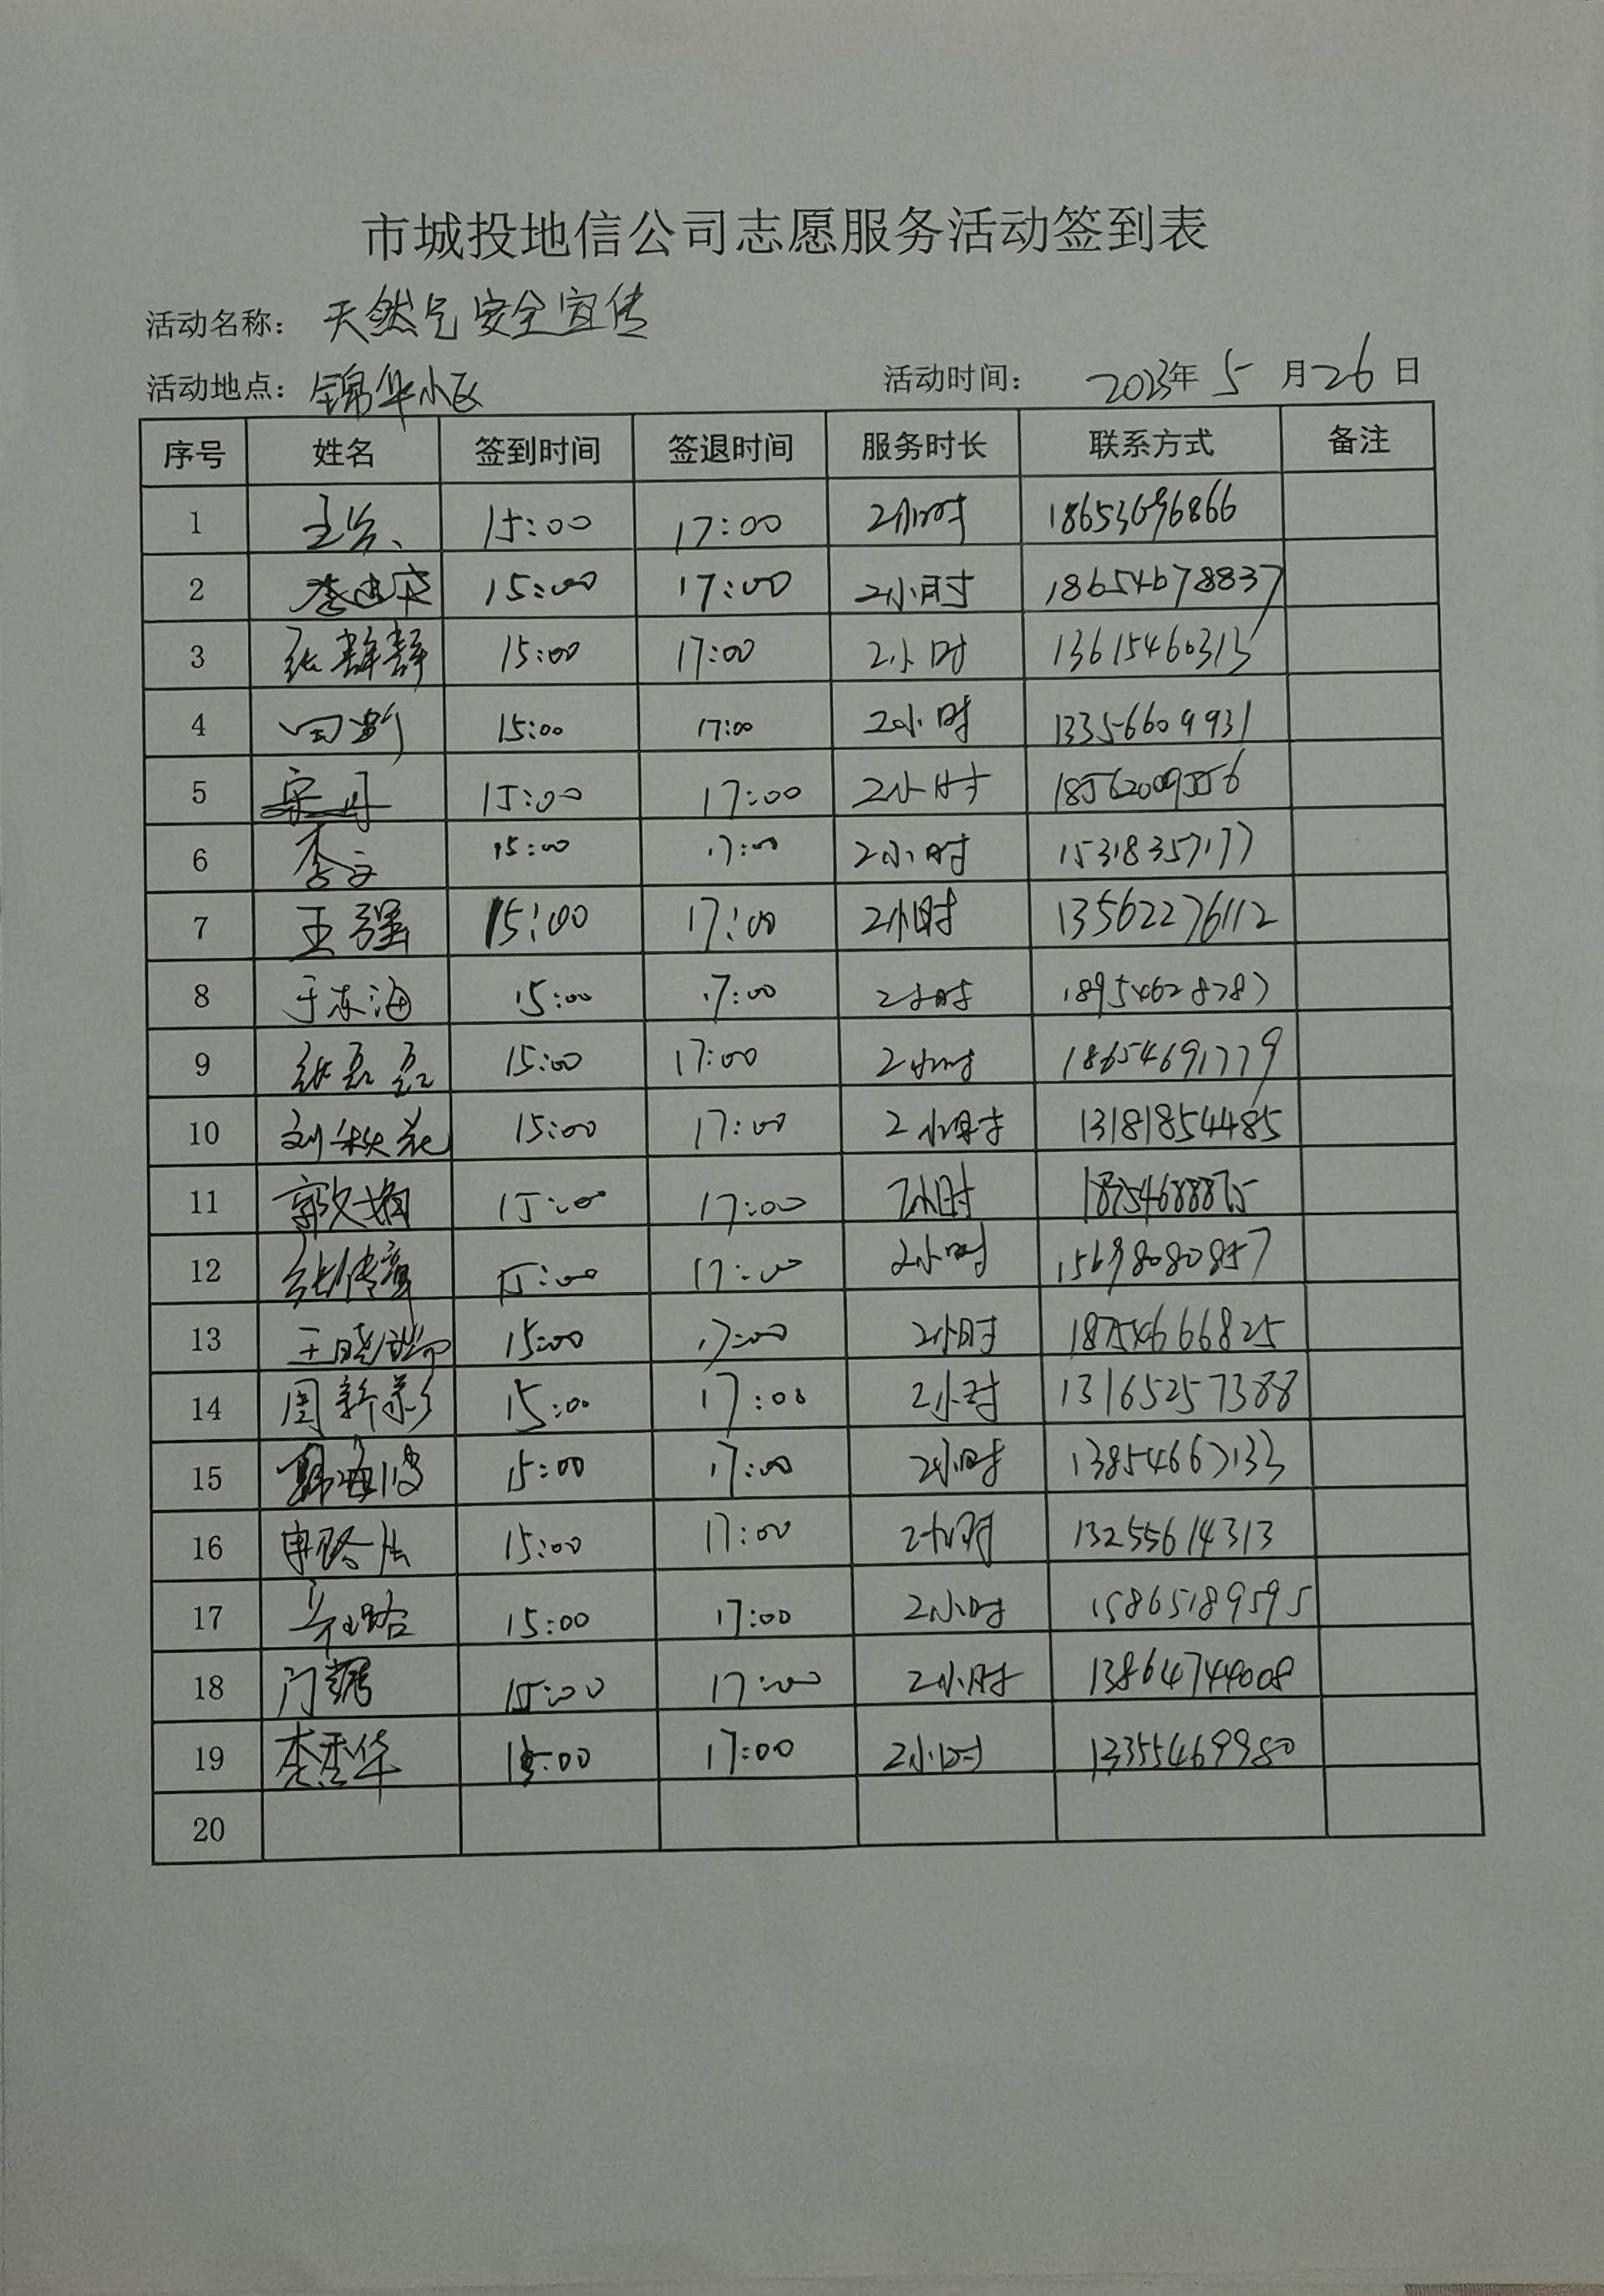 市城投地信公司志愿服务活动签到表
活动名称： 天然气安全宣传
活动地点： 锦华小区 活动时间： 2023年 5 月 26 日
序号 姓名 签到时间 签退时间 服务时长 联系方式 备注
1 15:00 17:00 2小时 18653696866
2 15:00 17:00 2小时 18654678837
3 张静静 15:00 17:00 2小时 13615460313
4 15:00 17:00 2小时 13356609931
5 宋丹 15:00 17:00 2小时 18562009556
6 李文 15:00 17:00 2小时 15318357177
7 王强 15:00 17:00 2小时 13562276112
8 于东海 15:00 17:00 2小时 18954628787
9 张磊磊 15:00 17:00 2小时 18654691779
10 刘秋花 15:00 17:00 2小时 13181854485
11 郭文娟 15:00 17:00 2小时 18754688875
12 张传章 15:00 17:00 2小时 15698080857
13 王晓瑞 15:00 17:00 2小时 18754666825
14 周新彩 15:00 17:00 2小时 13165257388
15 韩海波 15:00 17:00 2小时 13854667133
16 15:00 17:00 2小时 13255614313
17 15:00 17:00 2小时 15865189595
18 15:00 17:00 2小时 13864744008
19 李秀华 15:00 17:00 2小时 13355469980
20